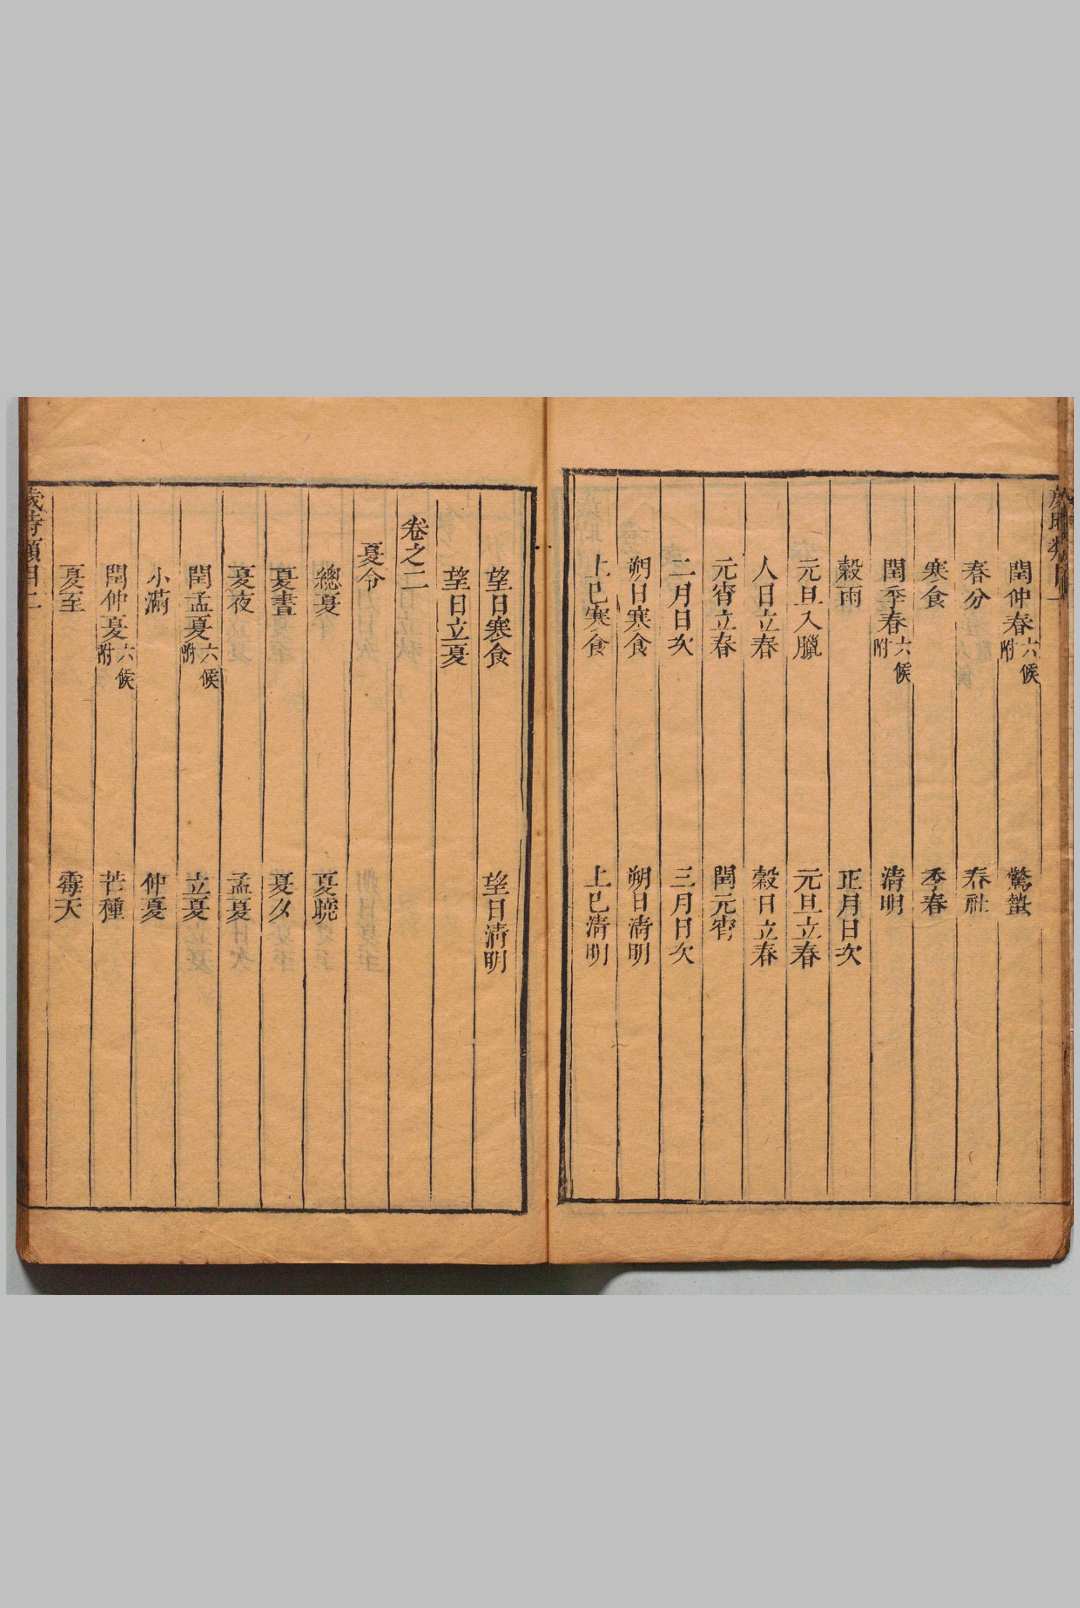 閏仲春六候附　驚蟄
春分　春社
寒食　季春
閏季春六候附　清明
穀雨　正月日次
元旦入臘　元旦立春
人日立春　穀日立春
元宵立春　閏元宵
二月日次　三月日次
朔日寒食　朔日清明
上巳寒食　上巳清明
望日寒食　望日清明
望日立夏
卷之二
夏令
總夏　夏曉
夏晝　夏夕
夏夜　孟夏
閏孟夏六候附　立夏
小滿　仲夏
閏仲夏六候附　芒種
夏至　霉天
歲時類目二